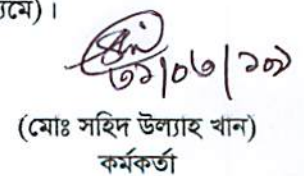 ৩১|০৩|২০১
(মোঃ সহিদ উল্যাহ খান)
কর্মকর্তা